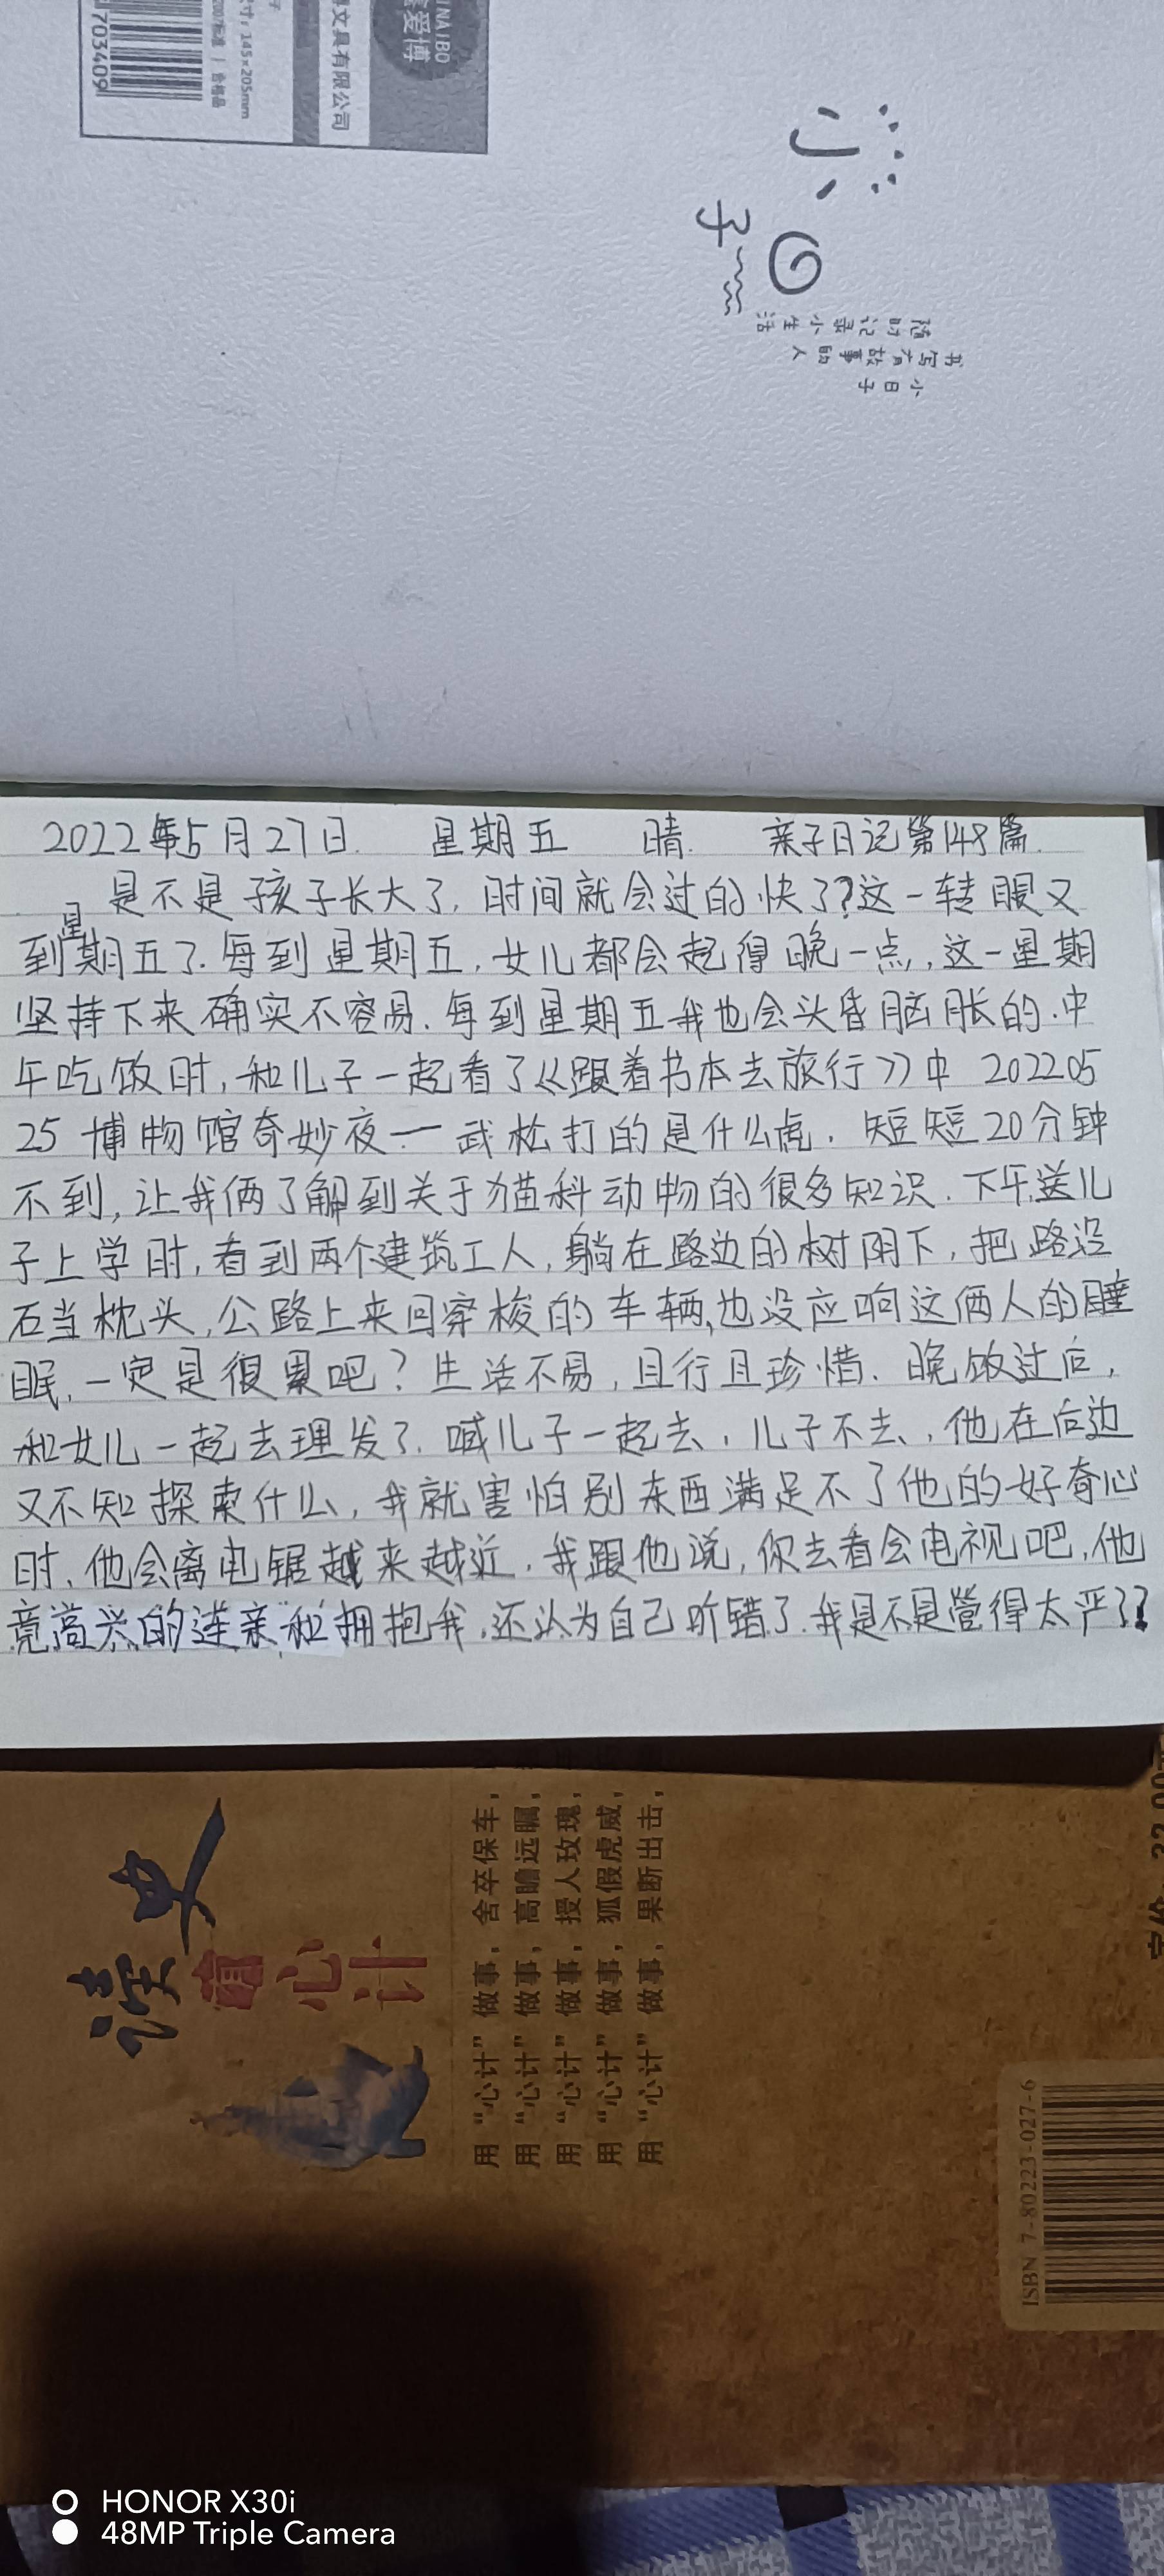 INAIBO
爱博
文具有限公司
寸：145×205mm
合格品
703409
小日子
随时记录小生活
书写有故事的人
小日子
2022年5月27日. 星期五 晴. 亲子日记第148篇.
是不是孩子长大了,时间就会过的快了?这一转眼又
到星期五了.每到星期五,女儿都会起得晚一点,这一星期
坚持下来确实不容易.每到星期五我也会头昏脑胀的.中
午吃饭时,和儿子一起看了《跟着书本去旅行》中 202205
25 博物馆奇妙夜一 武松打的是什么虎.短短20分钟
不到,让我俩了解到关于猫科动物的很多知识.下午送儿
子上学时,看到两个建筑工人,躺在路边的树阴下,把路沿
石当枕头,公路上来回穿梭的车辆,也没应响这俩人的睡
眠,一定是很累吧?生活不易,且行且珍惜.晚饭过后,
和女儿一起去理发了.喊儿子一起去,儿子不去,他在后边
又不知探索什么,我就害怕别东西满足不了他的好奇心
时,他会离电锯越来越近.我跟他说,你去看会电视吧,他
竟高兴的连亲和拥抱我,还认为自己听错了.我是不是管得太严??
读史有心计
用“心计”做事，舍卒保车，
用“心计”做事，高瞻远瞩，
用“心计”做事，授人玫瑰，
用“心计”做事，狐假虎威，
用“心计”做事，果断出击，
ISBN 7-80223-027-6
HONOR X30i
48MP Triple Camera